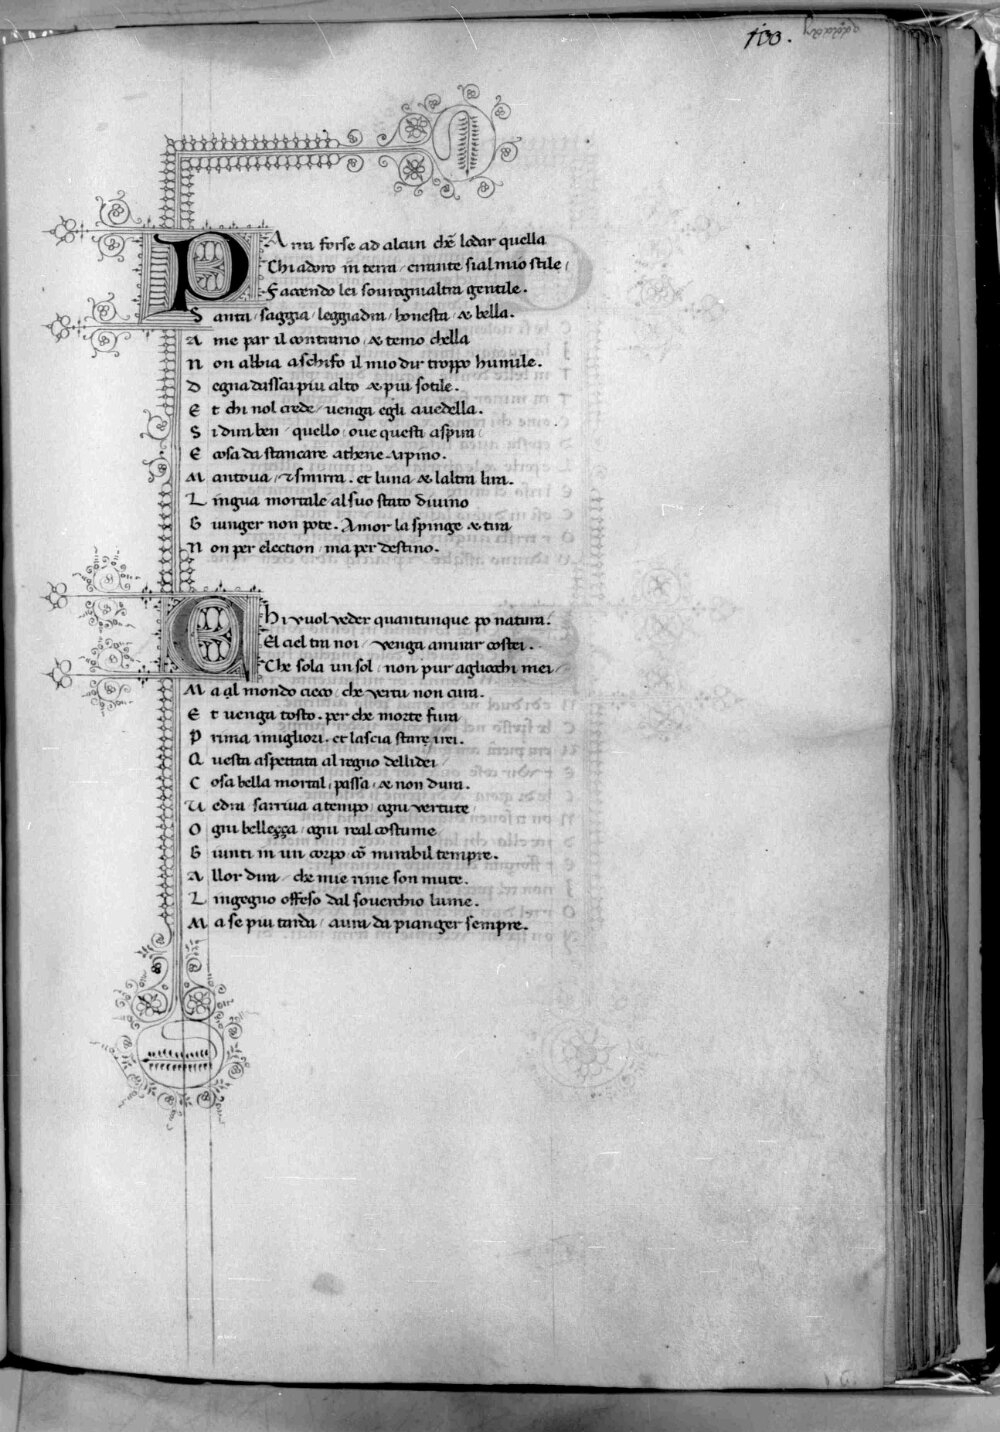 100.
PArra forse ad alcun chē lodar quella
Chi adoro in terra / errante sia l mio stile /
Faccendo lei sour ogni altra gentile.
Santa / saggia / leggiadra / honesta / & bella.
A me par il contrario / & temo chella
Non abbia a schifo il mio dir troppo humile.
Degna dassai piu alto & piu sotile.
Et chi nol crede / venga egli a vedella.
Si dira ben / quello oue questi aspira /
E cosa da stancare athene arpino.
Mantoua / & smirra. et luna & laltra lira.
Lingua mortale al suo stato diuino
Giunger non pote. Amor la spinge & tira
Non per election / ma per destino.
Chi vuol veder quantunque po natura.
El ciel tra noi / venga a mirar costei.
Che sola un sol / non pur agliocchi mei /
Ma al mondo cieco / che vertu non cura.
Et venga tosto. per che morte fura
Prima i migliori. et lascia stare irei.
Questa aspettata al regno dellidei /
Cosa bella mortal / passa / & non dura.
Vedra / sarriua a tempo / ogni vertute /
Ogni bellezza / ogni real costume
Giunti in un corpo cō mirabil tempre.
Allor dira / che mie rime son mute.
Lingegno offeso dal souerchio lume.
Ma se piu tarda / aura da pianger sempre.